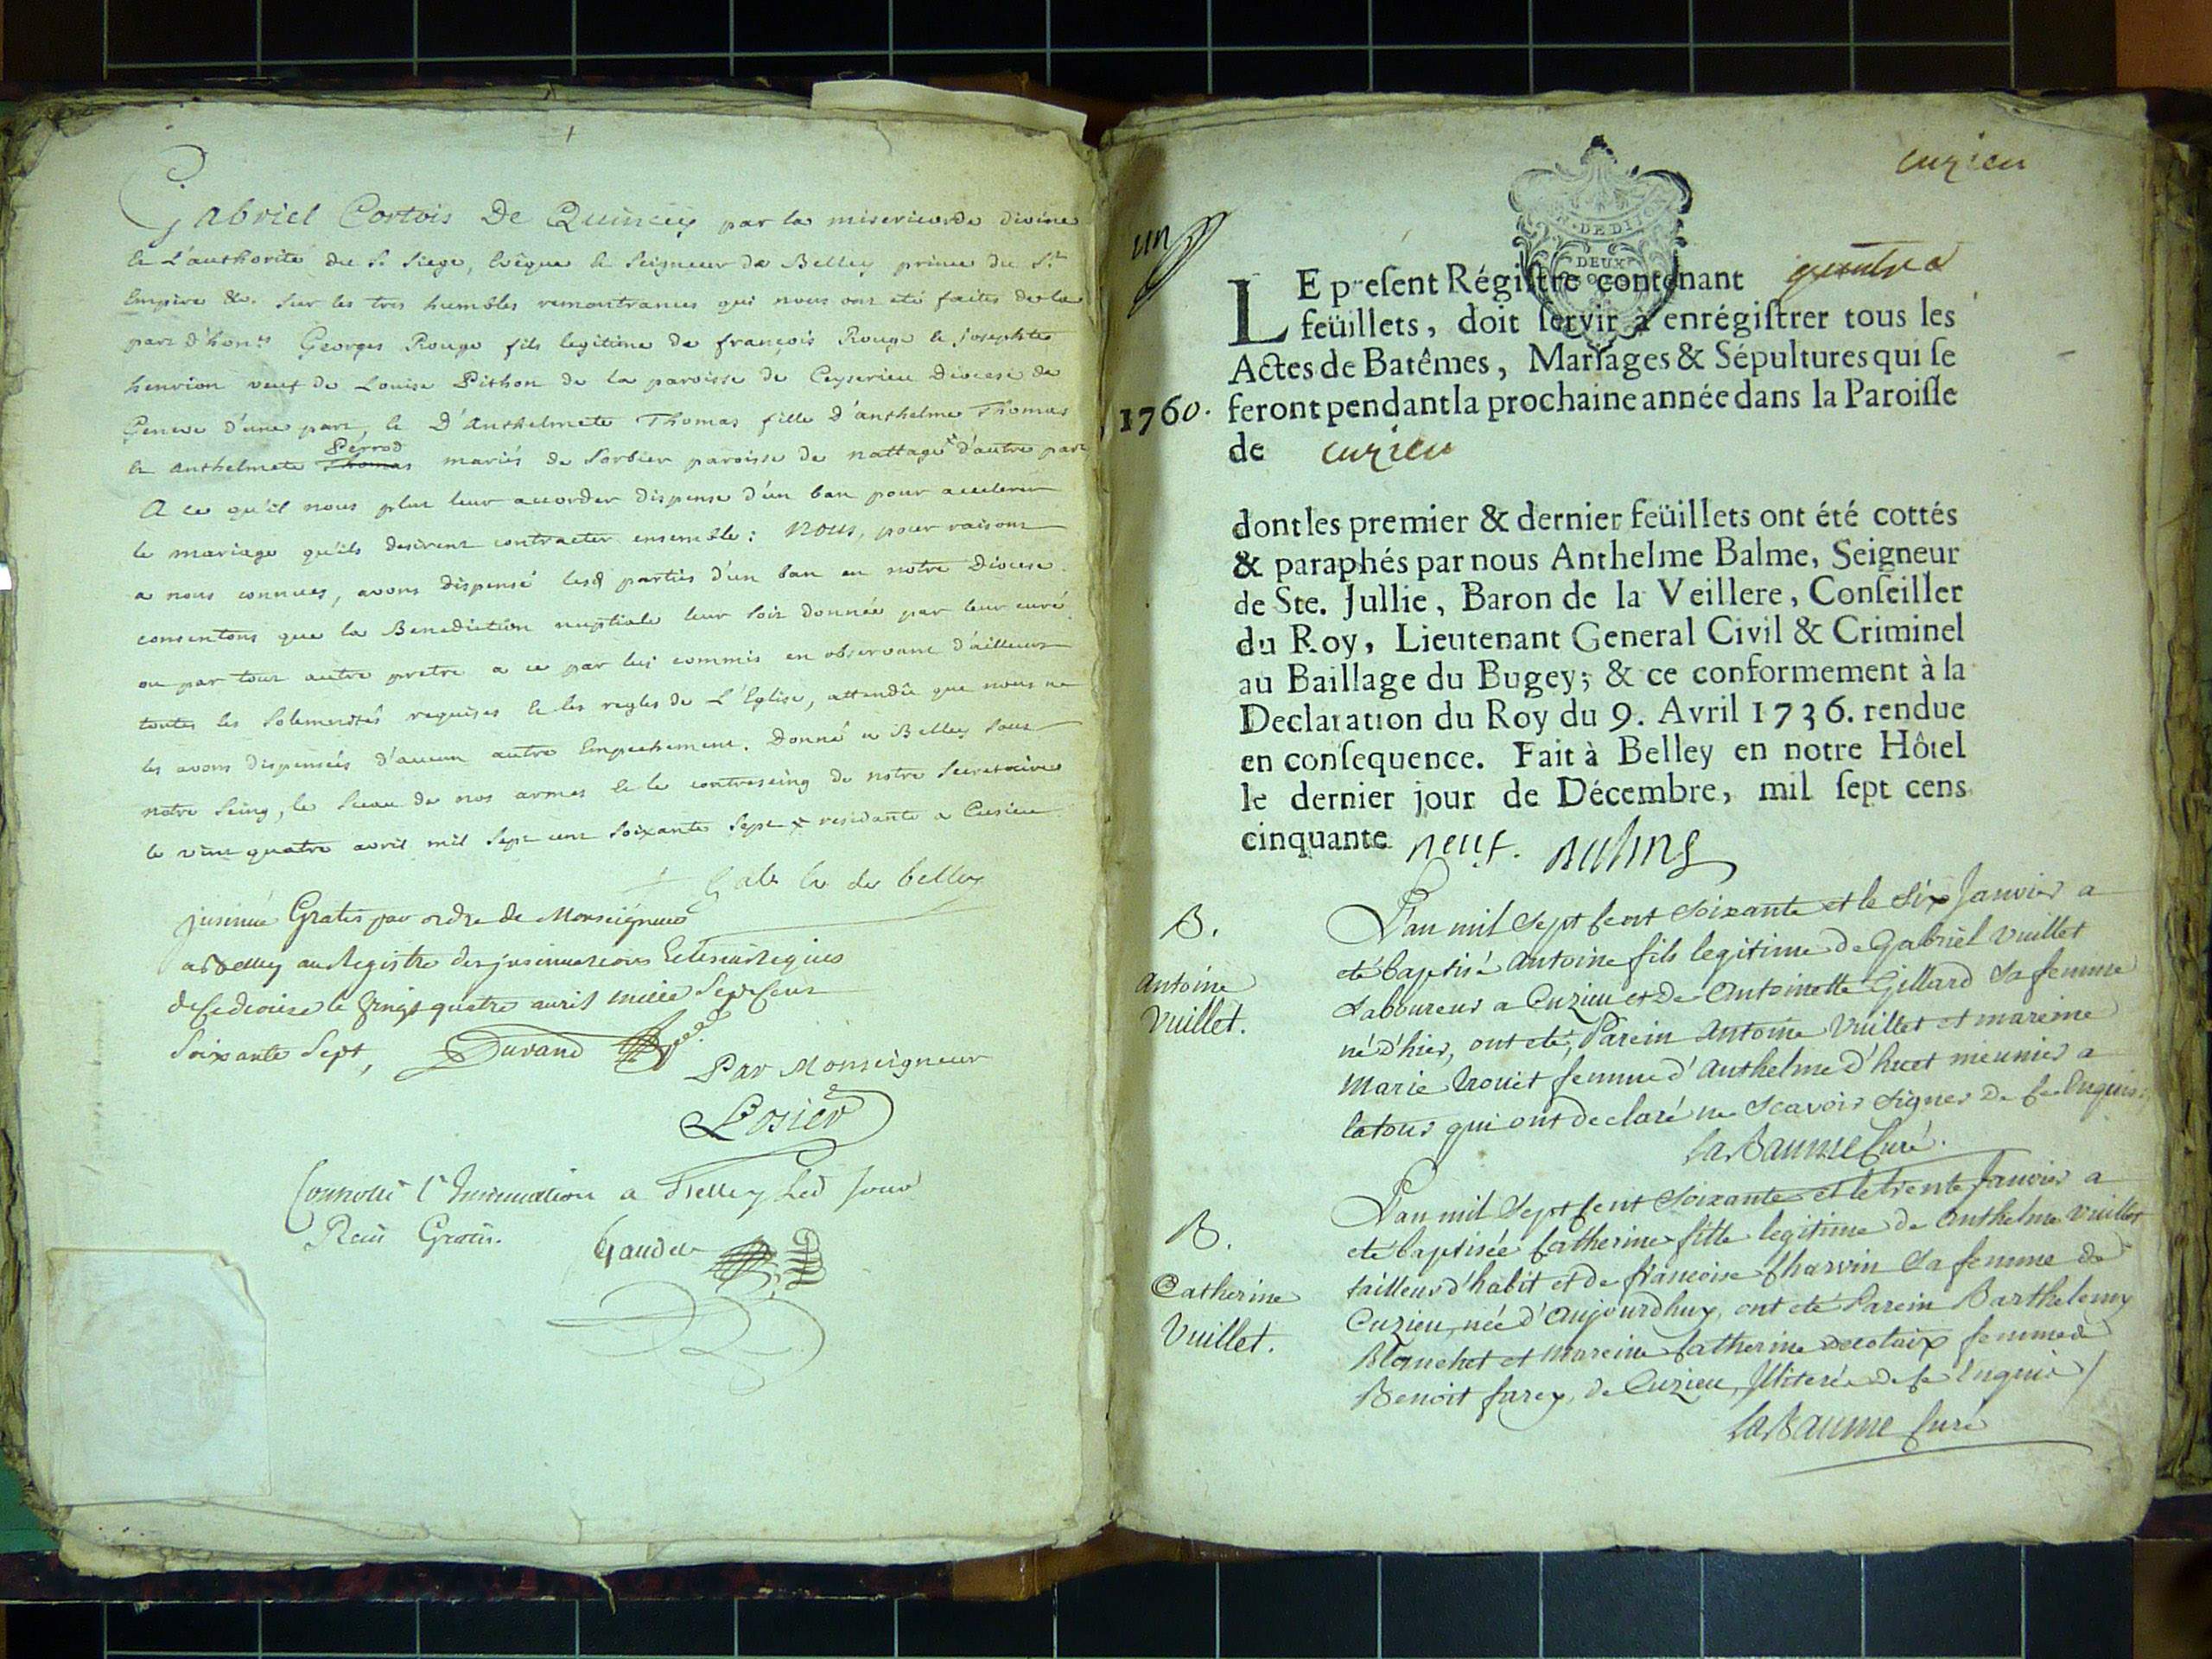 Gabriel Cortois De Quincey par la misericorde divine
et L'authorité du St. Siege, Evêque et Seigneur de Belley prince du St.
Empire &c. Sur les tres humbles remontrances qui nous ont eté faites de la
part d'honte. Georges Rouge fils legitime de françois Rouge et josephte
henrion veuf de Louise Pithon de la paroisse de Ceyserieu Diocese de
Geneve d'une part, et D'Anthelmete Thomas fille D'anthelme Thomas
et anthelmete Thomas Perrod mariés de Sorbier paroisse de nattage x d'autre part
A ce qu'il nous plut leur accorder dispense d'un ban pour accelerer
le mariage qu'ils desirent contracter ensemble: Nous, pour raisons
a nous connues, avons dispensé lesd parties d'un ban en notre Diocese.
consentons que la Benediction nuptiale leur soit donnée par leur curé
ou par tout autre pretre a ce par lui commis en observant d'ailleurs
toutes les Solemnités requises et les regles de L'Eglise, attendû que nous ne
les avons dispensés d'aucun autre Empechement. Donné a Belley sous
notre Seing, le Sceau de nos armes et le contreseing de notre Secretaire
le vint quatre avril mil sept cent soixante sept x residante a Cusieu
+ Gab. Ev. de belley
jnsinué Gratis par ordre de Monseigneur
a Belley au Registre des jnsinuations Eclesiastiques
de ce diocise le vingt quatre auril mille Sept Cent
Soixante Sept, Durand
Par Monseigneur
Losier
Controllé l'Insinuation a Belley led jour
Reçû Gratis.
Gaudet
cuzieu
un
DE DIJON
DEUX
LE present Régistre contenant quatre
feüillets, doit servir à enrégistrer tous les
Actes de Batêmes, Mariages & Sépultures qui se
1760. feront pendant la prochaine année dans la Paroisse
de cuzieu
dont les premier & dernier feüillets ont été cottés
& paraphés par nous Anthelme Balme, Seigneur
de Ste. Jullie, Baron de la Veillere, Conseiller
du Roy, Lieutenant General Civil & Criminel
au Baillage du Bugey; & ce conformement à la
Declaration du Roy du 9. Avril 1736. rendue
en consequence. Fait à Belley en notre Hôtel
le dernier jour de Décembre, mil sept cens
cinquante neuf. Balme
B.
Antoine
Vuillet.
L'an mil Sept Cent Soixante et le Six Janvier a
eté baptisé Antoine fils legitime de Gabriel Vuillet
Laboureur a Cuzieu et de Antoinette Gillard Sa femme
né d'hier, ont eté, Parein Antoine Vuillet et mareine
Marie femme d'Anthelme d'huet meunier a
latour qui ont declaré ne Scavoir Signer de Ce Enquis;
LaBaume Curé.
B.
Catherine
Vuillet.
L'an mil Sept Cent Soixante et le trente Janvier a
eté baptisée Catherine fille legitime de Anthelme Vuillet
tailleur d'habit et de françoise Charvin Sa femme de
Cuzieu, née d'Aujourdhuy, ont eté Parein Barthelemy
Blanchet et Mareine Catherine femme de
Benoit furey, de Cuzieu, Illiterés de Ce Enquis /
LaBaume Curé